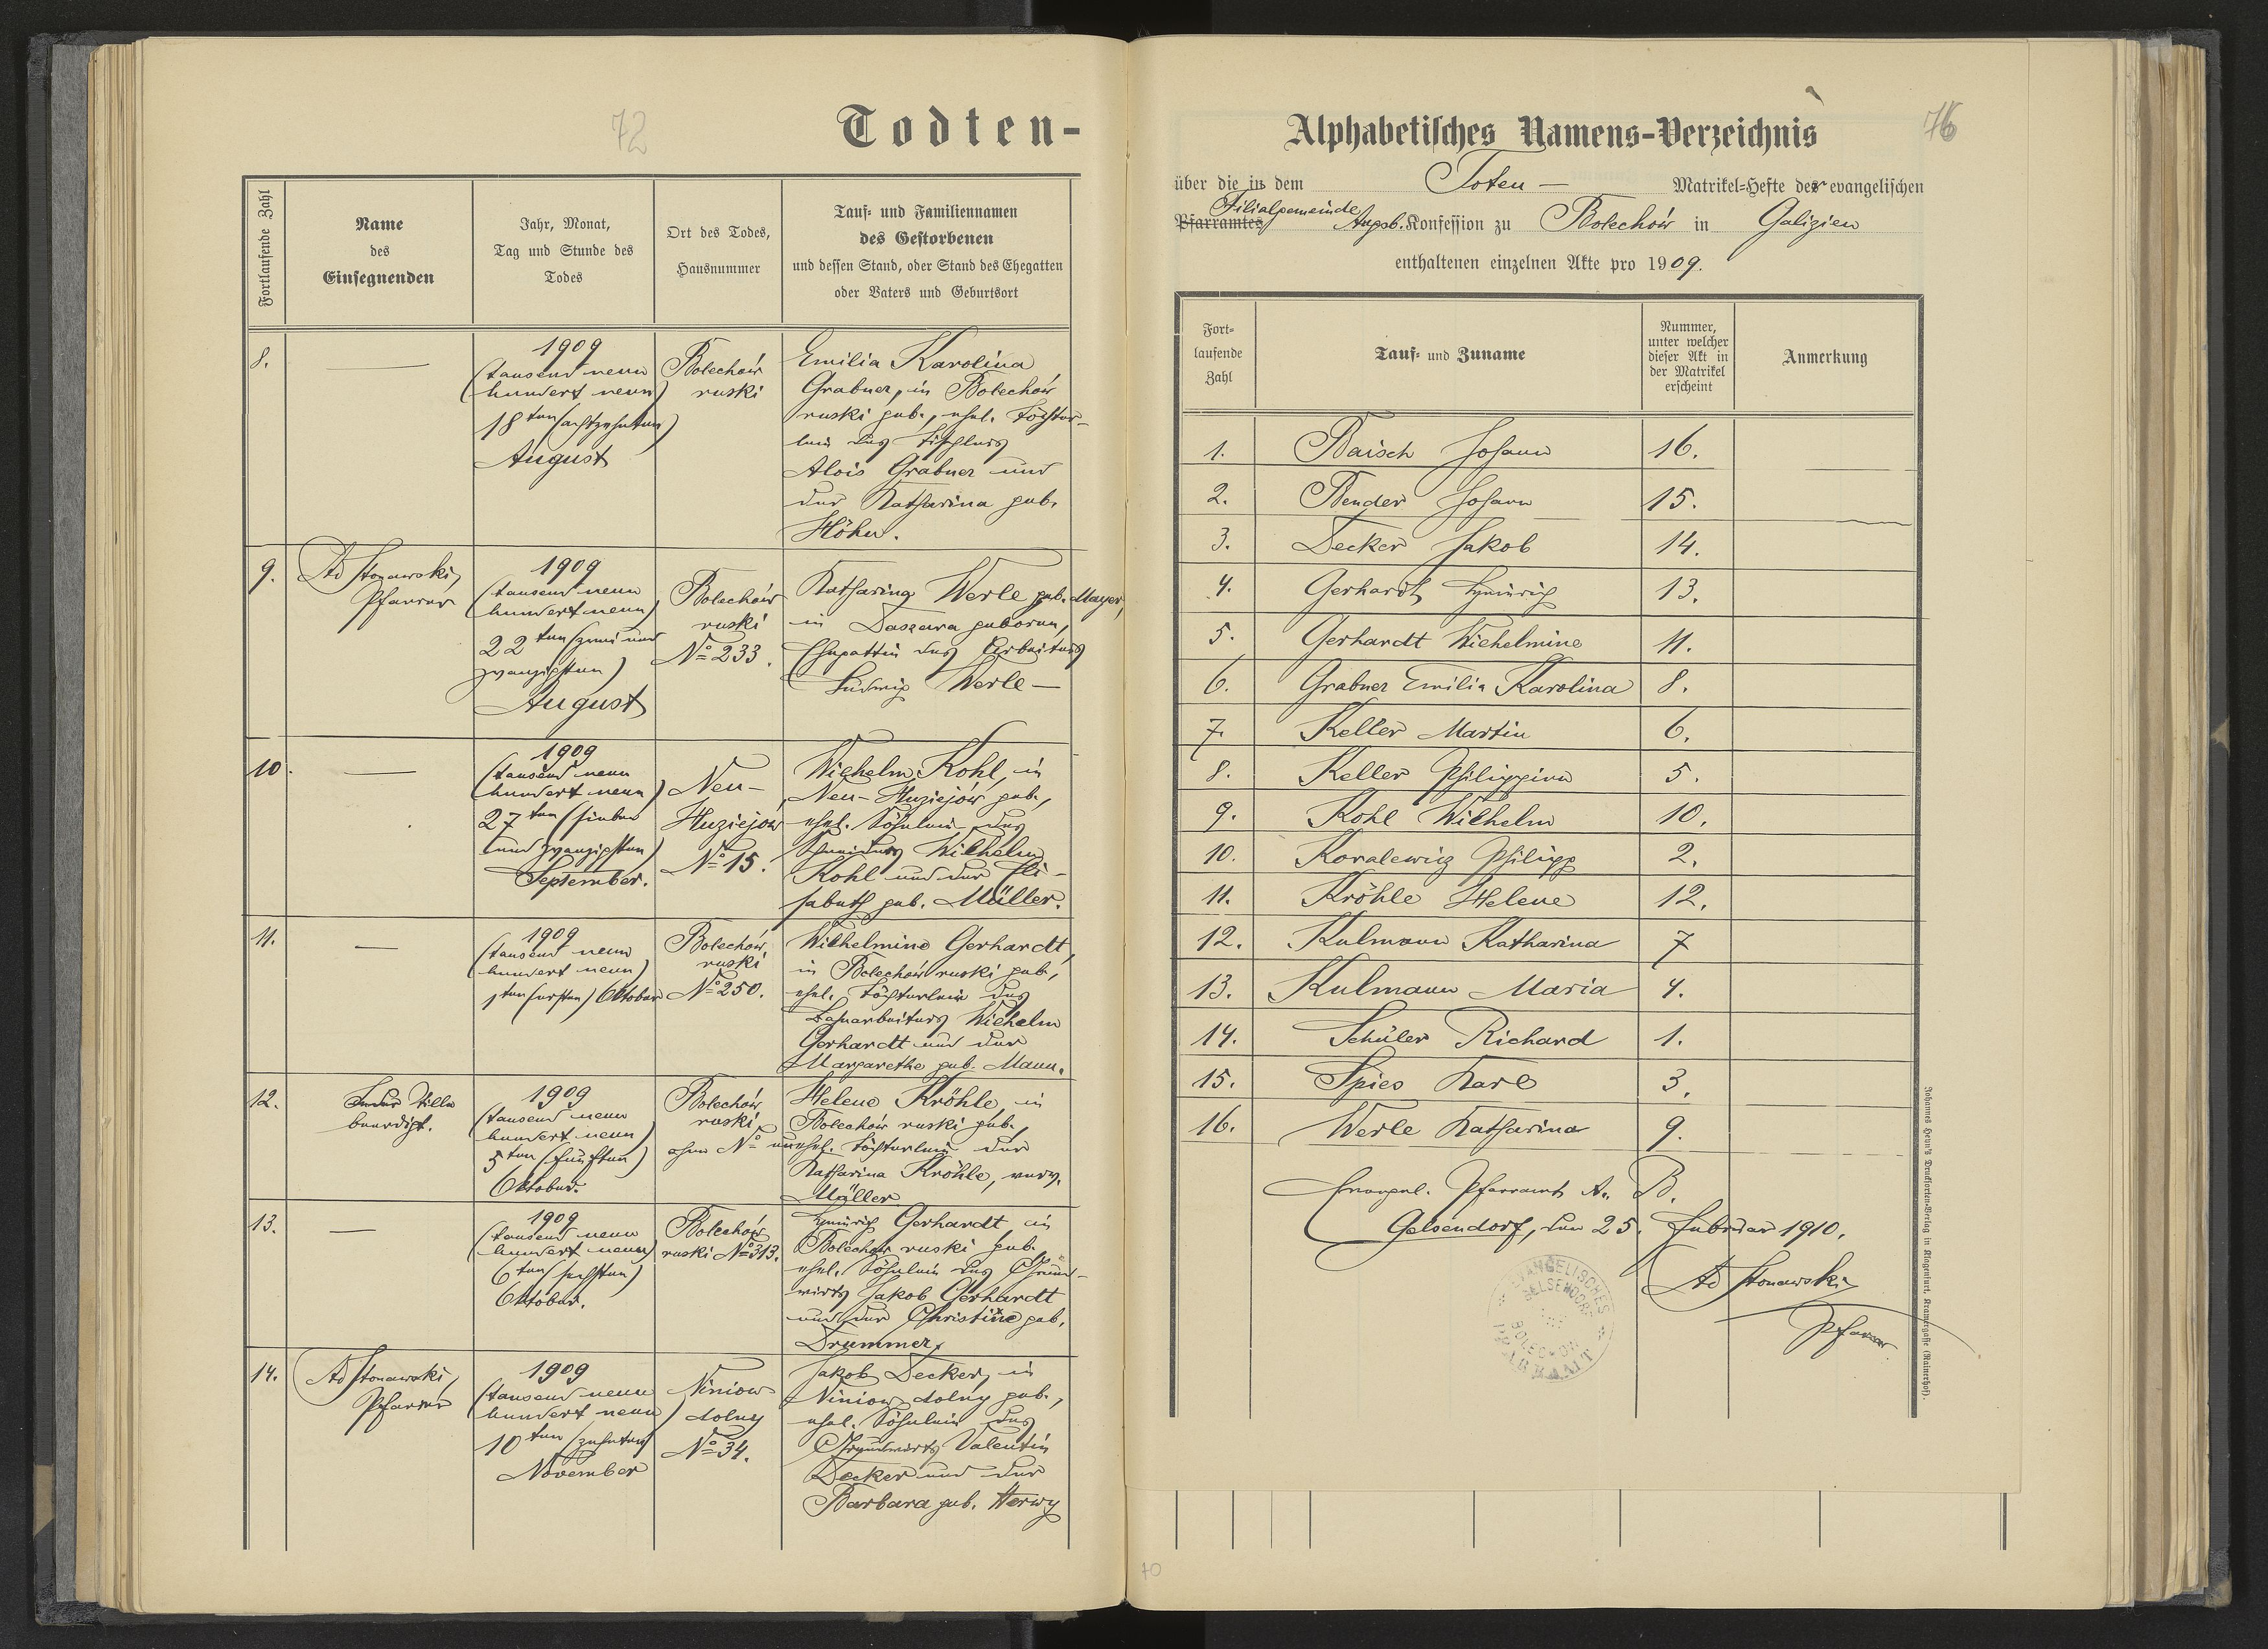 72
Todten-
Fortlaufende Zahl
Name
des
Einsegnenden
Jahr, Monat,
Tag und Stunde des
Todes
Ort des Todes,
Hausnummer
Tauf- und Familiennamen
des Gestorbenen
und dessen Stand, oder Stand des Ehegatten
oder Vaters und Geburtsort
8.
—
1909
(tausend neun
hundert neun)
18ten (achtzehnten)
August
Bolechów
ruski
Emilia Karolina
Grabner, in Bolechów
ruski geb., ehel. Töchter-
lein des Tischlers
Alois Grabner und
der Katharina geb.
Höhn.
9.
Ad Stonawski,
Pfarrer
1909
(tausend neun
hundert neun)
22ten (zwei und
zwanzigsten)
August
Bolechów
ruski
No 233.
Katharina Werle geb. Mayer,
in Daszawa geboren,
Ehegattin des Arbeiters
Ludwig Werle —
10.
—
1909
(tausend neun
hundert neun)
27ten (sieben
und zwanzigsten)
September.
Neu-
Huziejów
No 15.
Wilhelm Kohl, in
Neu-Huziejów geb.,
ehel. Söhnlein des
Schneiders Wilhelm
Kohl und der Eli-
sabeth geb. Müller.
11.
—
1909
(tausend neun
hundert neun)
1ten (ersten) Oktober
Bolechów
ruski
No 250.
Wilhelmine Gerhardt,
in Bolechów ruski geb.,
ehel. Töchterlein des
Wilhelm
Gerhardt und der
Margarethe geb. Mann.
12.
In der Stille
beerdigt.
1909
(tausend neun
hundert neun)
5ten (fünften)
Oktober.
Bolechów
ruski
ohne No
Helene Kröhle, in
Bolechów ruski geb.,
unehel. Töchterlein der
Katharina Kröhle, verw.
Müller
13.
—
1909
(tausend neun
hundert neun)
6ten (sechsten)
Oktober.
Bolechów
ruski No 313.
Heinrich Gerhardt, in
Bolechów ruski geb.
ehel. Söhnlein des Grund-
wirts Jakob Gerhardt
und der Christine geb.
Drummer.
14.
Ad Stonawski,
Pfarrer
1909
(tausend neun
hundert neun)
10ten (zehnten)
November
Niniow
dolny
No 34.
Jakob Decker, in
Niniow dolny geb.,
ehel. Söhnlein des
Grundwirts Valentin
Decker und der
Barbara geb. Herwy
76
Alphabetisches Namens-Verzeichnis
über die in dem Toten- Matrikel-Hefte der evangelischen
Filialgemeinde
Pfarramtes Augsb. Konfession zu Bolechów in Galizien
enthaltenen einzelnen Akte pro 1909.
Fort-
laufende
Zahl
Tauf- und Zuname
Nummer,
unter welcher
dieser Akt in
der Matrikel
erscheint
Anmerkung
1. Baisch Johann 16.
2. Bender Johann 15.
3. Decker Jakob 14.
4. Gerhardt Heinrich 13.
5. Gerhardt Wilhelmine 11.
6. Grabner Emilia Karolina 8.
7. Keller Martin 6.
8. Keller Philippine 5.
9. Kohl Wilhelm 10.
10. Koralewicz Philipp 2.
11. Kröhle Helene 12.
12. Kulmann Katharina 7
13. Kulmann Maria 4.
14. Schüler Richard 1.
15. Spies Karl 3.
16. Werle Katharina 9.
Evangel. Pfarramt A. B.
Gelsendorf, den 25. Februar 1910.
Ad Stonawski
Pfarrer
EVANGELISCHES
GELSENDORF
BOLECHOW
PFARRAMT
Johannes Heyn's Drucksorten-Verlag in Klagenfurt, Kramergasse (Rainerhof).
70